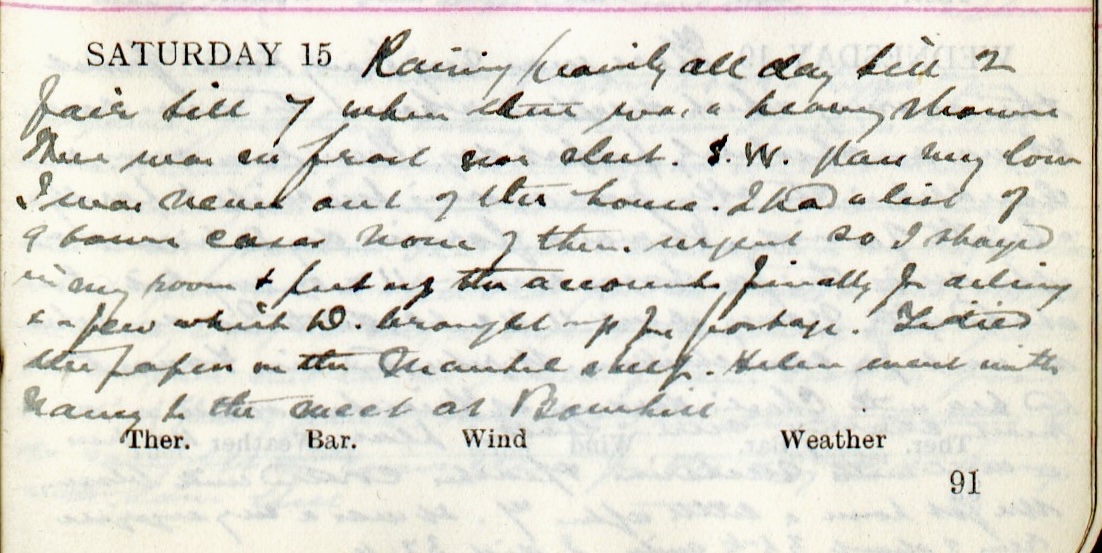 SATURDAY 15 Raining heavily all day till 2
fair till 7 when there was a heavy shower
There was no frost nor sleet. S.W. low
I was never out of the house. I had a list of
9 town cases none of them urgent so I stayed
in my room & put up the accounts finally for
& a few which D. brought up for postage. Tidied
the papers on the Mantel shelf. Helen went with
Nancy to the meet at Bowhill
Ther. Bar. Wind Weather
91